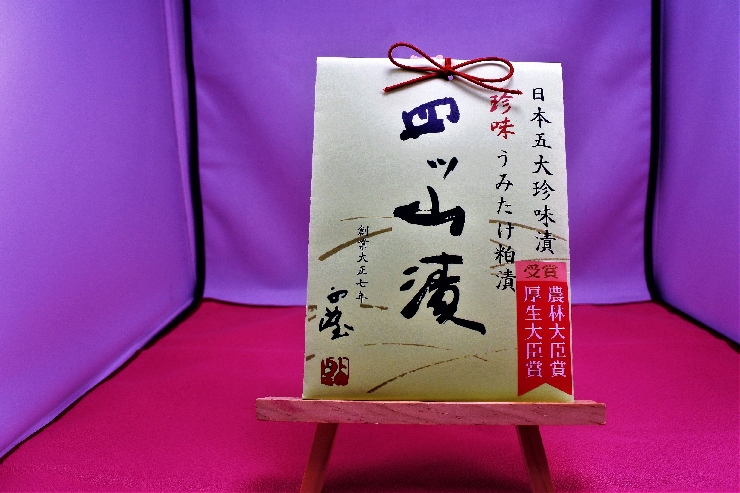 日本五大珍味漬
珍味うみたけ粕漬
四ッ山漬
創業大正七年
受賞
農林大臣賞
厚生大臣賞